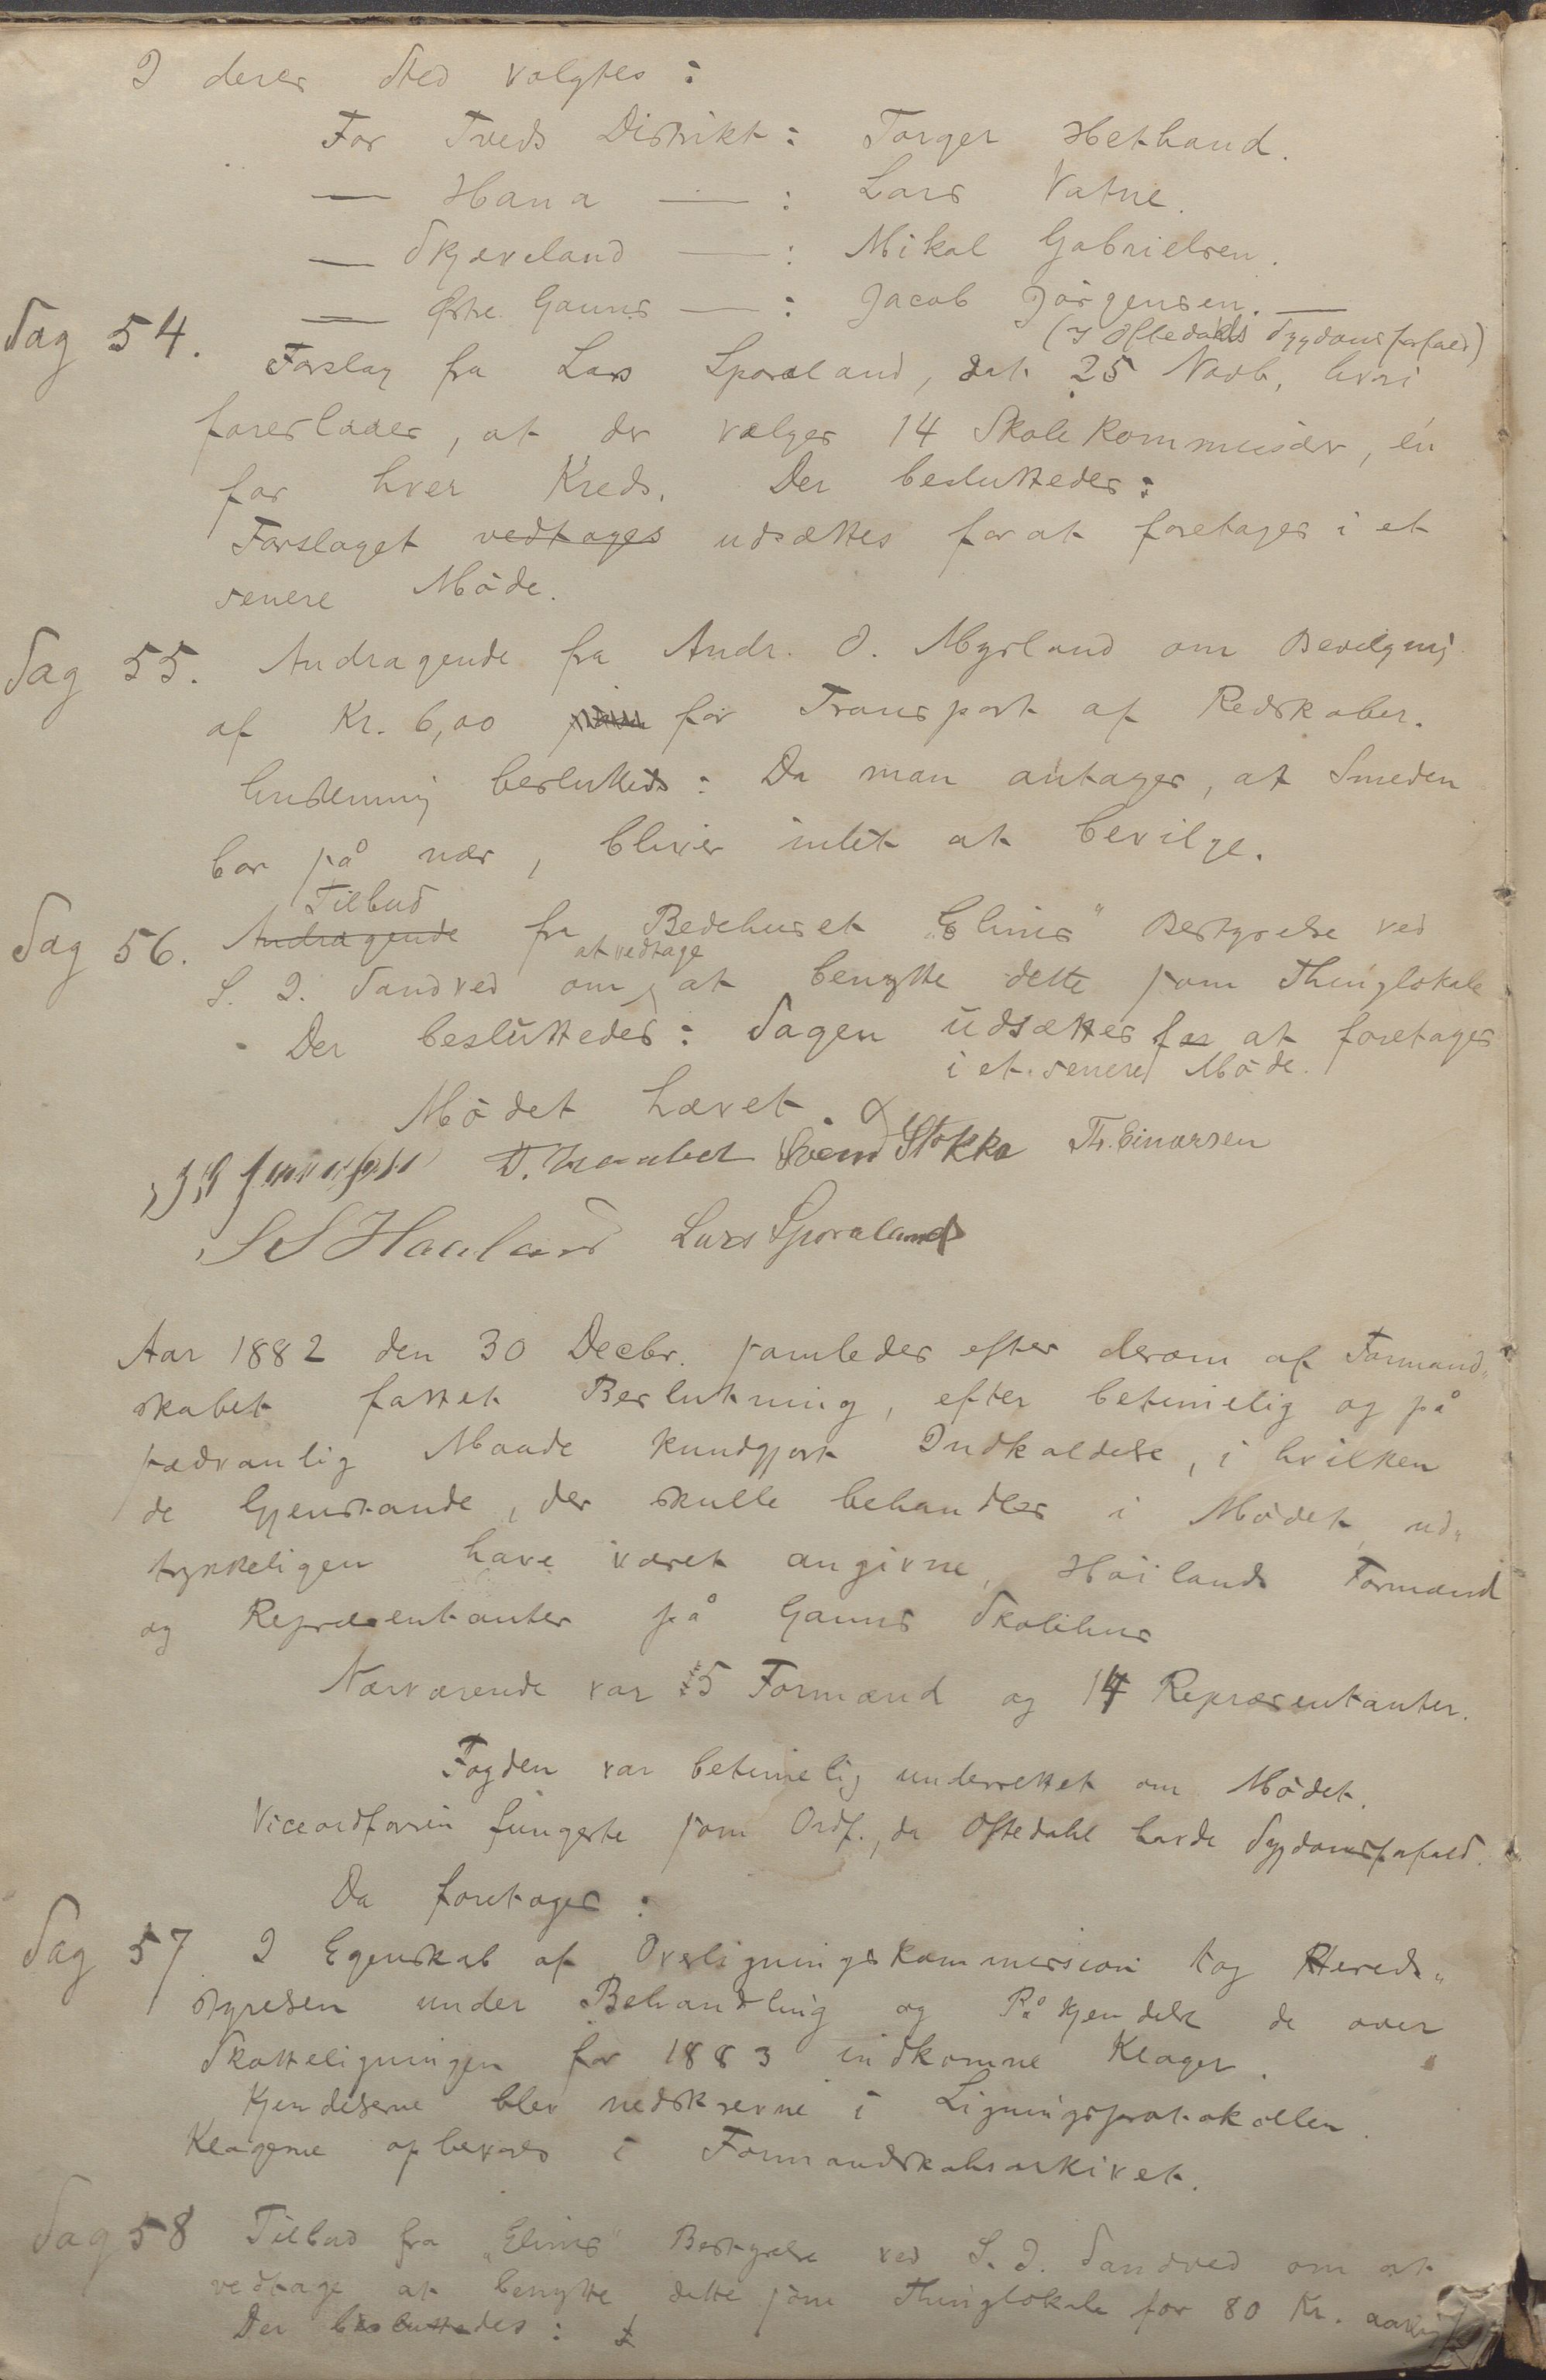 I deres Sted valgtes:
For Tveds Distrikt: Torger Hetland.
— Hana — : Lars Vatne.
— Skjæveland — : Mikal Gabrielsen.
— Østre Gauns — : Jacob Jörgensen. —
(I Oftedahls Sygdomsforfald)
Sag 54.
Forslag fra Lars Sporaland, dat. 25 Novb., hvori
foreslaaes, at der vælges 14 Skolekommissær, én
for hver Kreds. Der besluttedes:
Forslaget vedtages udsættes for at foretages i et
senere Möde.
Sag 55. Andragende fra Andr. O. Myrland om Bevilgning
af Kr. 6,00 for Transport af Redskaber.
besluttedes: Da man antager, at Smeden
bor på nær, bliver intet at bevilge.
Tilbud
Sag 56. Andragende fra Bedehuset „Elims" Bestyrelse ved
at vedtage
S. I. Sandved om at benytte dette som Thinglokale
Der besluttedes: Sagen udsættes for at foretages
i et senere Möde.
Mödet hævet.
Svend Stokka Th. Einarsen
S S Haaland Lars Sporaland
Aar 1882 den 30 Decbr. samledes efter derom af Formand„
skabet fattet Beslutning, efter betimelig og på
sædvanlig Maade kundgjort Indkaldelse, i hvilken
de Gjenstande, der skulle behandles i Mödet, ud„
trykkeligen have været angivne, Höilands Formænd
og Repræsentanter på Gauns Skolehus
Nærværende var 5 Formænd og 14 Repræsentanter.
Fogden var betimelig underrettet om Mödet.
Viceordføreren fungerte som Ordf., da Oftedahl havde Sygdomsforfald.
Da foretoges:
Sag 57 I Egenskab af Overligningskommission tog Hereds„
styrelsen under Behandling og Påkjendelse de over
Skatteligningen for 1883 indkomne Klager.
Kjendelserne blev nedskrevne i Ligningsprotokollen.
Klagerne opbevares i Formandskabsarkivet.
Sag 58 Tilbud fra „Elims" Bestyrelse ved S. I. Sandved om at
vedtage at benytte dette som Thinglokale for 80 Kr. aarlig
Der besluttedes: